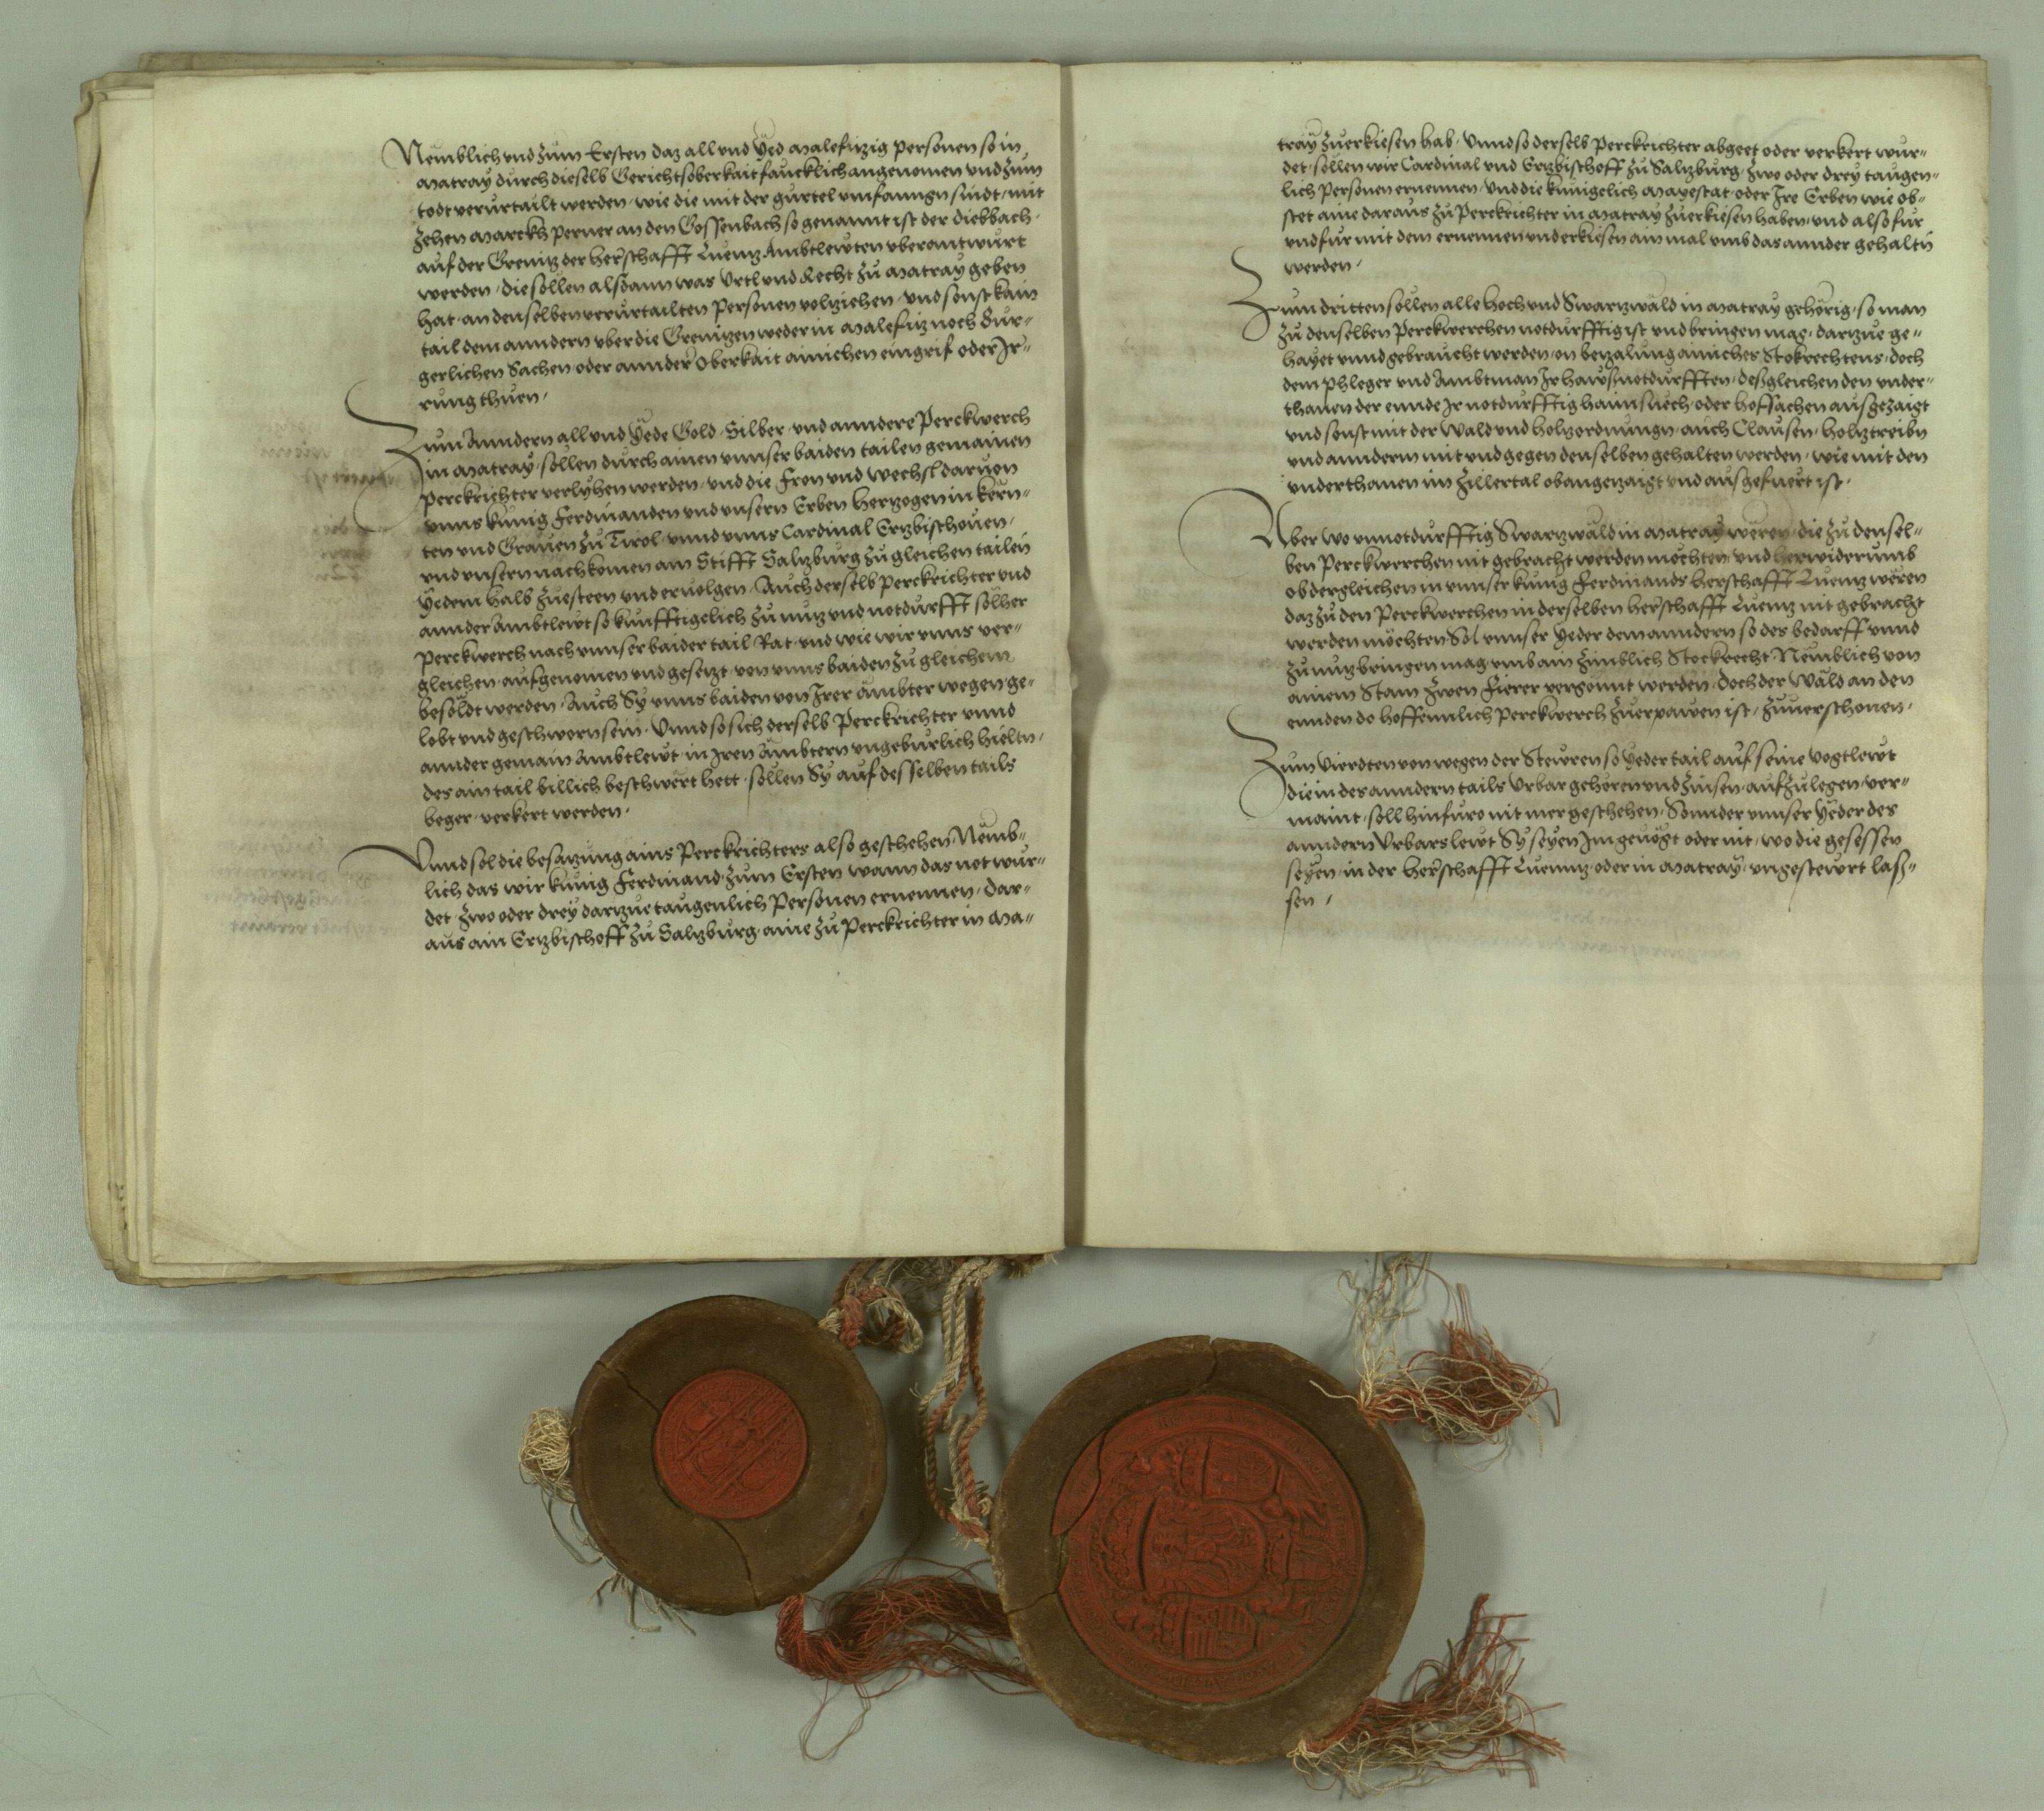 Nemblich vnd zum Ersten daz all vnd yed Malefitzig personen so in
Matray durch dieselb Gerichtsoberkait fäncklich angenomen vnd zum
todt verurtailt werden, wie die mit der gurtel vmfanngn sindt, mit
zehen Marckh perner an den Gossenbach so genannt ist der diebbach,
auf der Grenitz der herschafft Luenz Ambtlewten vberantwurt
werden, die sollen alsdann was Vrtl vnd Recht zu Matray geben
hat, an denselben verurtailten personen volziehen, vnd sonst kain
tail dem anndern vber die Grenitzen weder in Malefitz noch Bur-
gerlichen Sachen oder annder Oberkait ainichen eingrif oder Ir-
rung thuen.
Zum Anndern all vnd yede Gold, Silber, vnd anndere Perckwerch
in Matray, sollen durch ainen vnnser baiden tailen gemainen
Perckrichter verlyhen werden, vnd die Fron vnd wechsl daruon
vnns kunig Ferdinanden vnd vnsern Erben Hertzogen in kern-
ten vnd Grauen zu Tirol, vnnd vnns Cardinal Ertzbischouen,
vnd vnsern nachkomen am Stifft Saltzburg zu gleichen tailen
yedem halb zuesteen vnd eruolgen, Auch derselb perckrichter vnd
annder Ambtlewt so kunfftigelich zu nutz vnd notdurfft solher
Perckwerch nach vnnser baider tail Rat, vnd wie wir vnns ver-
gleichen, aufgenomen vnd gesetzt, von vnns baiden zu gleichem
besöldt werden, Auch Sy vnns baiden von Irer ämbter wegen ge-
lobt vnd geschworn sein, Vnnd so sich derselb Perckrichter vnnd
annder gemain Ambtlewt, in Iren Ämbtern vngeburlich hieltn,
des ain tail billich beschwert hett, sollen Sy auf desselben tails
beger, verkert werden.
Vnnd sol die besatzung ains Perckrichters also geschehen, Nemb-
lich das wir kunig Ferdinand, zum Ersten wann das not wur-
det, zwo oder drey dartzue taugenlich Personen ernennen, dar-
aus ain Ertzbischoff zu Saltzburg, aine zu Perckrichter in Ma-
tray zuerkiesen hab, Vnnd so derselb Perckrichter abgeet oder verkert wur-
det, sollen wir Cardinal vnd Ertzbischoff zu Saltzburg, zwo oder drey taugen-
lich Personen ernennen, Vnd die kunigelich Mayestat, oder Ire Erben wie ob-
stet aine daraus zu Perckrichter in Matray zuerkiesen haben, vnd also fur
vnd fur mit dem ernennen vnd erkiesen ain mal vmb das annder gehaltn
werden.
Zum dritten sollen alle hoch vnd Swartzwäld in Matray gehörig, so man
zu denselben Perckwerchen notdurfftig ist vnd bringen mag, dartzue ge-
hayet vnnd gebraucht werden, on betzalung ainiches Stokrechtens, doch
dem Phleger vnd Ambtman Ir hawsnotdurfften, desgleichen den vnder-
thanen der ennde Ir notdurfftig haimsuech, oder hoffachen ausgezaigt
vnd sonst mit der Wald vnd holtzordnungn, auch Clausen, holtztreibn
vnd annderm mit vnd gegen denselben gehalten werden, wie mit den
vnderthanen im Zillertal obangetzaigt vnd ausgefuert ist.
Aber wo vnnotdurfftig Swartzwäld in Matray weren, die zu densel-
ben Perckwerchen nit gebracht werden möchten vnd herwiderumb
ob dergleichen in vnnser kunig Ferdinands herschafft Luentz weren
daz zu den Perckwerchen in derselben herschafft Luentz nit gebracht
werden möchten Sol vnnser yeder dem anndern so des bedarff vnnd
zu nutz bringen mag, vmb ain zimblich Stockrecht, Nemblich von
ainem Stam zwen Fierer vergönnt werden, Doch der Wäld an den
ennden do hoffennlich Perckwerch zuerpawen ist, zuuerschonen.
Zum Vierdten von wegen der Stewren so yeder tail auf seine Vogtlewt
die in des anndern tails Vrbar geheren vnd zinsen, aufzulegen ver-
maint, soll hinfuro nit mer geschehen, Sonnder vnnser yeder des
anndern Vrbarslewt Sy seyen Im geuögt oder nit, wo die gesessen
seyen, in der herschafft Luenntz, oder in Matray, vngestewrt las-
sen.